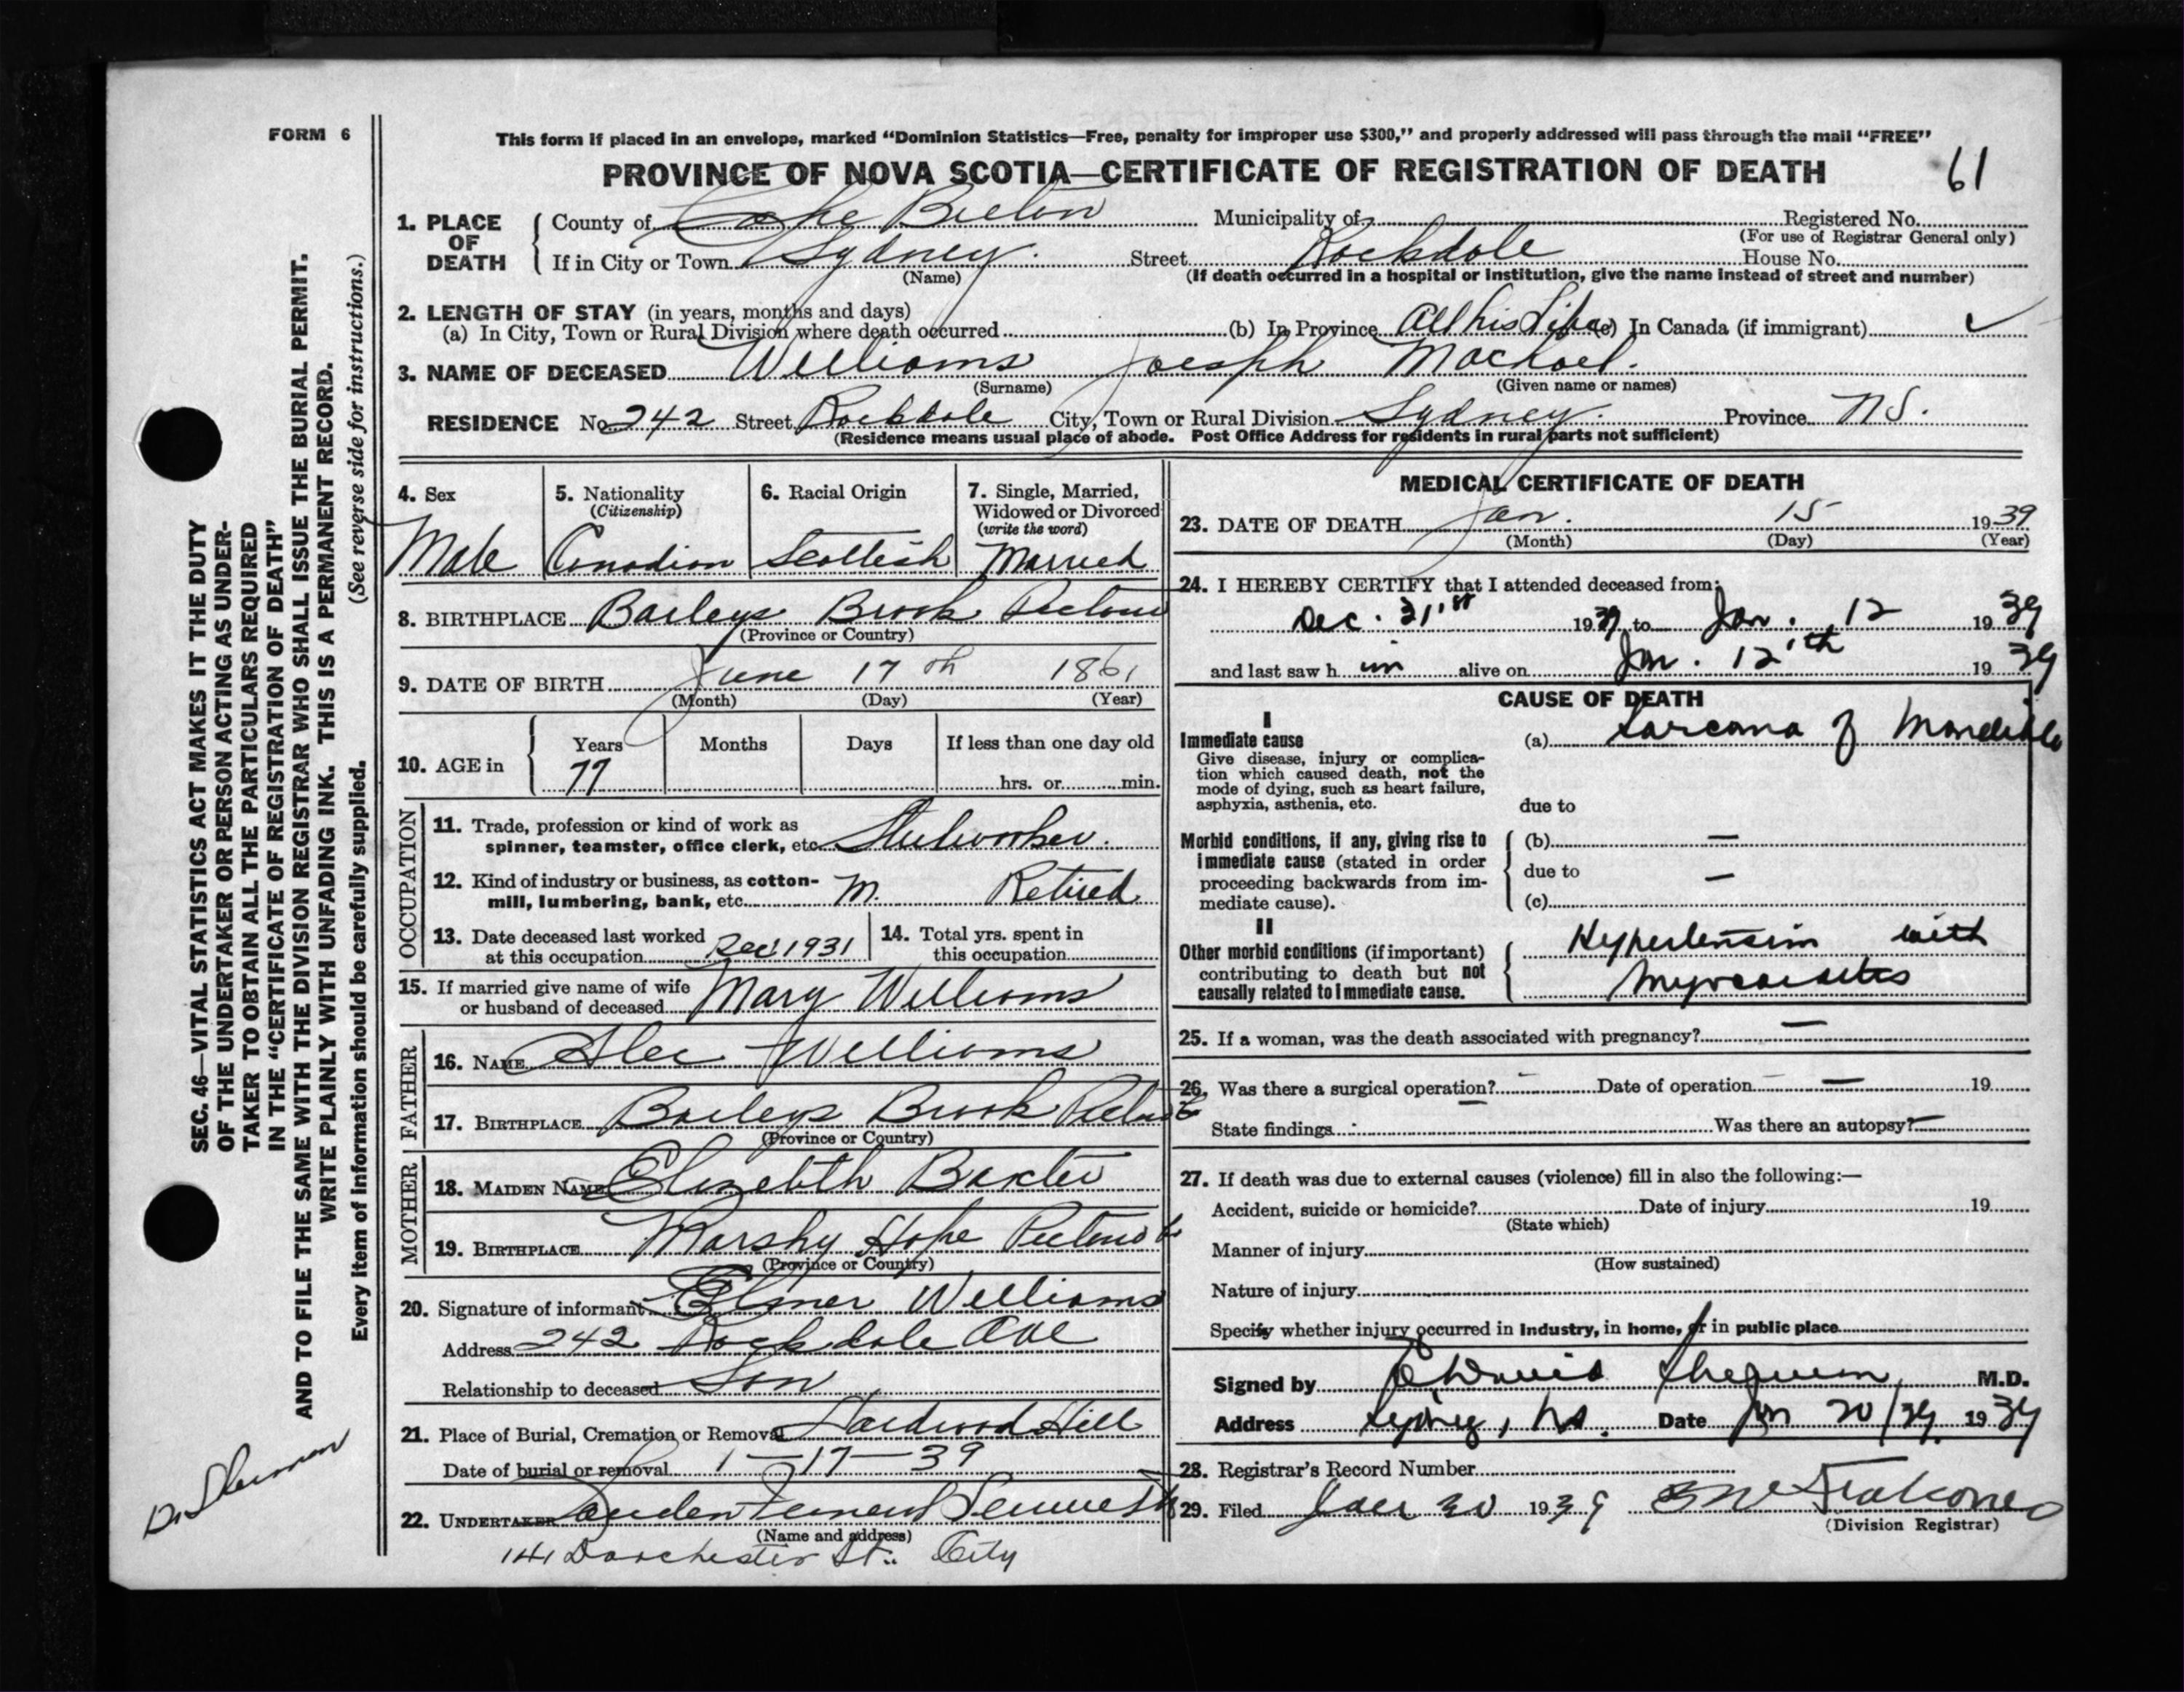 FORM 6
This form if placed in an envelope, marked “Dominion Statistics—Free, penalty for improper use $300,” and properly addressed will pass through the mail “FREE”
PROVINCE OF NOVA SCOTIA—CERTIFICATE OF REGISTRATION OF DEATH
61
1. PLACE OF DEATH County of Cape Breton Municipality of Registered No.
(For use of Registrar General only)
If in City or Town Sydney. Street Rockdale House No.
(Name) (If death occurred in a hospital or institution, give the name instead of street and number)
2. LENGTH OF STAY (in years, months and days)
(a) In City, Town or Rural Division where death occurred (b) In Province All his Life (c) In Canada (if immigrant) ✓
3. NAME OF DECEASED Williams Joesph Machael.
(Surname) (Given name or names)
RESIDENCE No. 242 Street Rockdale City, Town or Rural Division Sydney. Province N.S.
(Residence means usual place of abode. Post Office Address for residents in rural parts not sufficient)
4. Sex
Male
5. Nationality
(Citizenship)
Canadian
6. Racial Origin
Scottish
7. Single, Married,
Widowed or Divorced
(write the word)
Married
8. BIRTHPLACE Baileys Brook Pictou
(Province or Country)
9. DATE OF BIRTH June 17th 1861
(Month) (Day) (Year)
10. AGE in Years Months Days If less than one day old
77 hrs. or min.
OCCUPATION
11. Trade, profession or kind of work as
spinner, teamster, office clerk, etc. Steelworker.
12. Kind of industry or business, as cotton-
mill, lumbering, bank, etc. M. Retired
13. Date deceased last worked
at this occupation Dec 1931
14. Total yrs. spent in
this occupation
15. If married give name of wife
or husband of deceased Mary Williams
FATHER
16. NAME Alec Williams
17. BIRTHPLACE Baileys Brook Pictou Co
(Province or Country)
MOTHER
18. MAIDEN NAME Elizebth Baxter
19. BIRTHPLACE Marshy Hope Pictou Co
(Province or Country)
20. Signature of informant Elmer Williams
Address 242 Rockdale Ave
Relationship to deceased Son
21. Place of Burial, Cremation or Removal Hardwood Hill
Date of burial or removal 1—17—39
22. UNDERTAKER Funeral
(Name and address)
141 Dorchester St. City
MEDICAL CERTIFICATE OF DEATH
23. DATE OF DEATH Jan. 15 1939
(Month) (Day) (Year)
24. I HEREBY CERTIFY that I attended deceased from:
Dec. 31st 1939 to Jan. 12 1939
and last saw him alive on Jan. 12th 1939
CAUSE OF DEATH
I
Immediate cause (a) Sarcoma of Mandible
Give disease, injury or complica-
tion which caused death, not the
mode of dying, such as heart failure,
asphyxia, asthenia, etc. due to
Morbid conditions, if any, giving rise to (b) —
immediate cause (stated in order
proceeding backwards from im- due to —
mediate cause). (c)
II
Other morbid conditions (if important) Hypertension with
contributing to death but not
causally related to immediate cause. Myocarditis
25. If a woman, was the death associated with pregnancy? —
26. Was there a surgical operation? — Date of operation — 19
State findings Was there an autopsy? —
27. If death was due to external causes (violence) fill in also the following:—
Accident, suicide or homicide? Date of injury 19
(State which)
Manner of injury
(How sustained)
Nature of injury
Specify whether injury occurred in industry, in home, or in public place
Signed by M.D.
Address Sydney, N.S. Date Jan 20/39. 1939
28. Registrar's Record Number
29. Filed Jan 30 1939
(Division Registrar)
SEC. 46—VITAL STATISTICS ACT MAKES IT THE DUTY
OF THE UNDERTAKER OR PERSON ACTING AS UNDER-
TAKER TO OBTAIN ALL THE PARTICULARS REQUIRED
IN THE “CERTIFICATE OF REGISTRATION OF DEATH”
AND TO FILE THE SAME WITH THE DIVISION REGISTRAR WHO SHALL ISSUE THE BURIAL PERMIT.
WRITE PLAINLY WITH UNFADING INK. THIS IS A PERMANENT RECORD.
Every item of information should be carefully supplied. (See reverse side for instructions.)